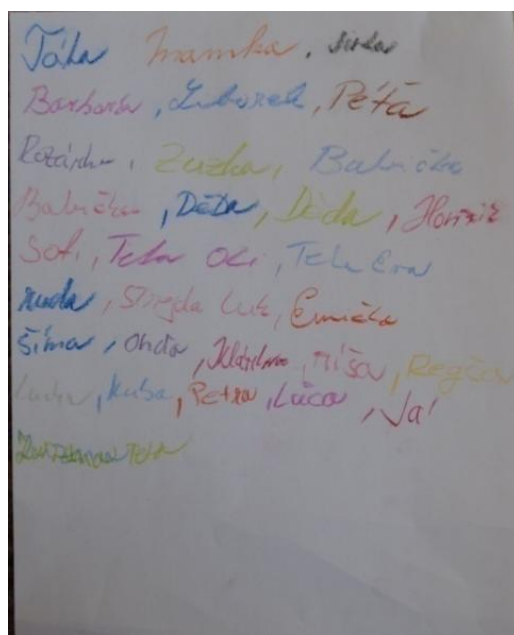 Táta Mamka,
Barborka, Liborek, Péťa
Rozárka, Zuzka, Babička
Babička, Děda, Děda,
Sofi, Teta Oli, Teta Eva
Ruda, Strejda Luk, Emička
Šíma, Ondra, Klárka, Míša,
Kuba, Petra, Lúca, Já
Teta